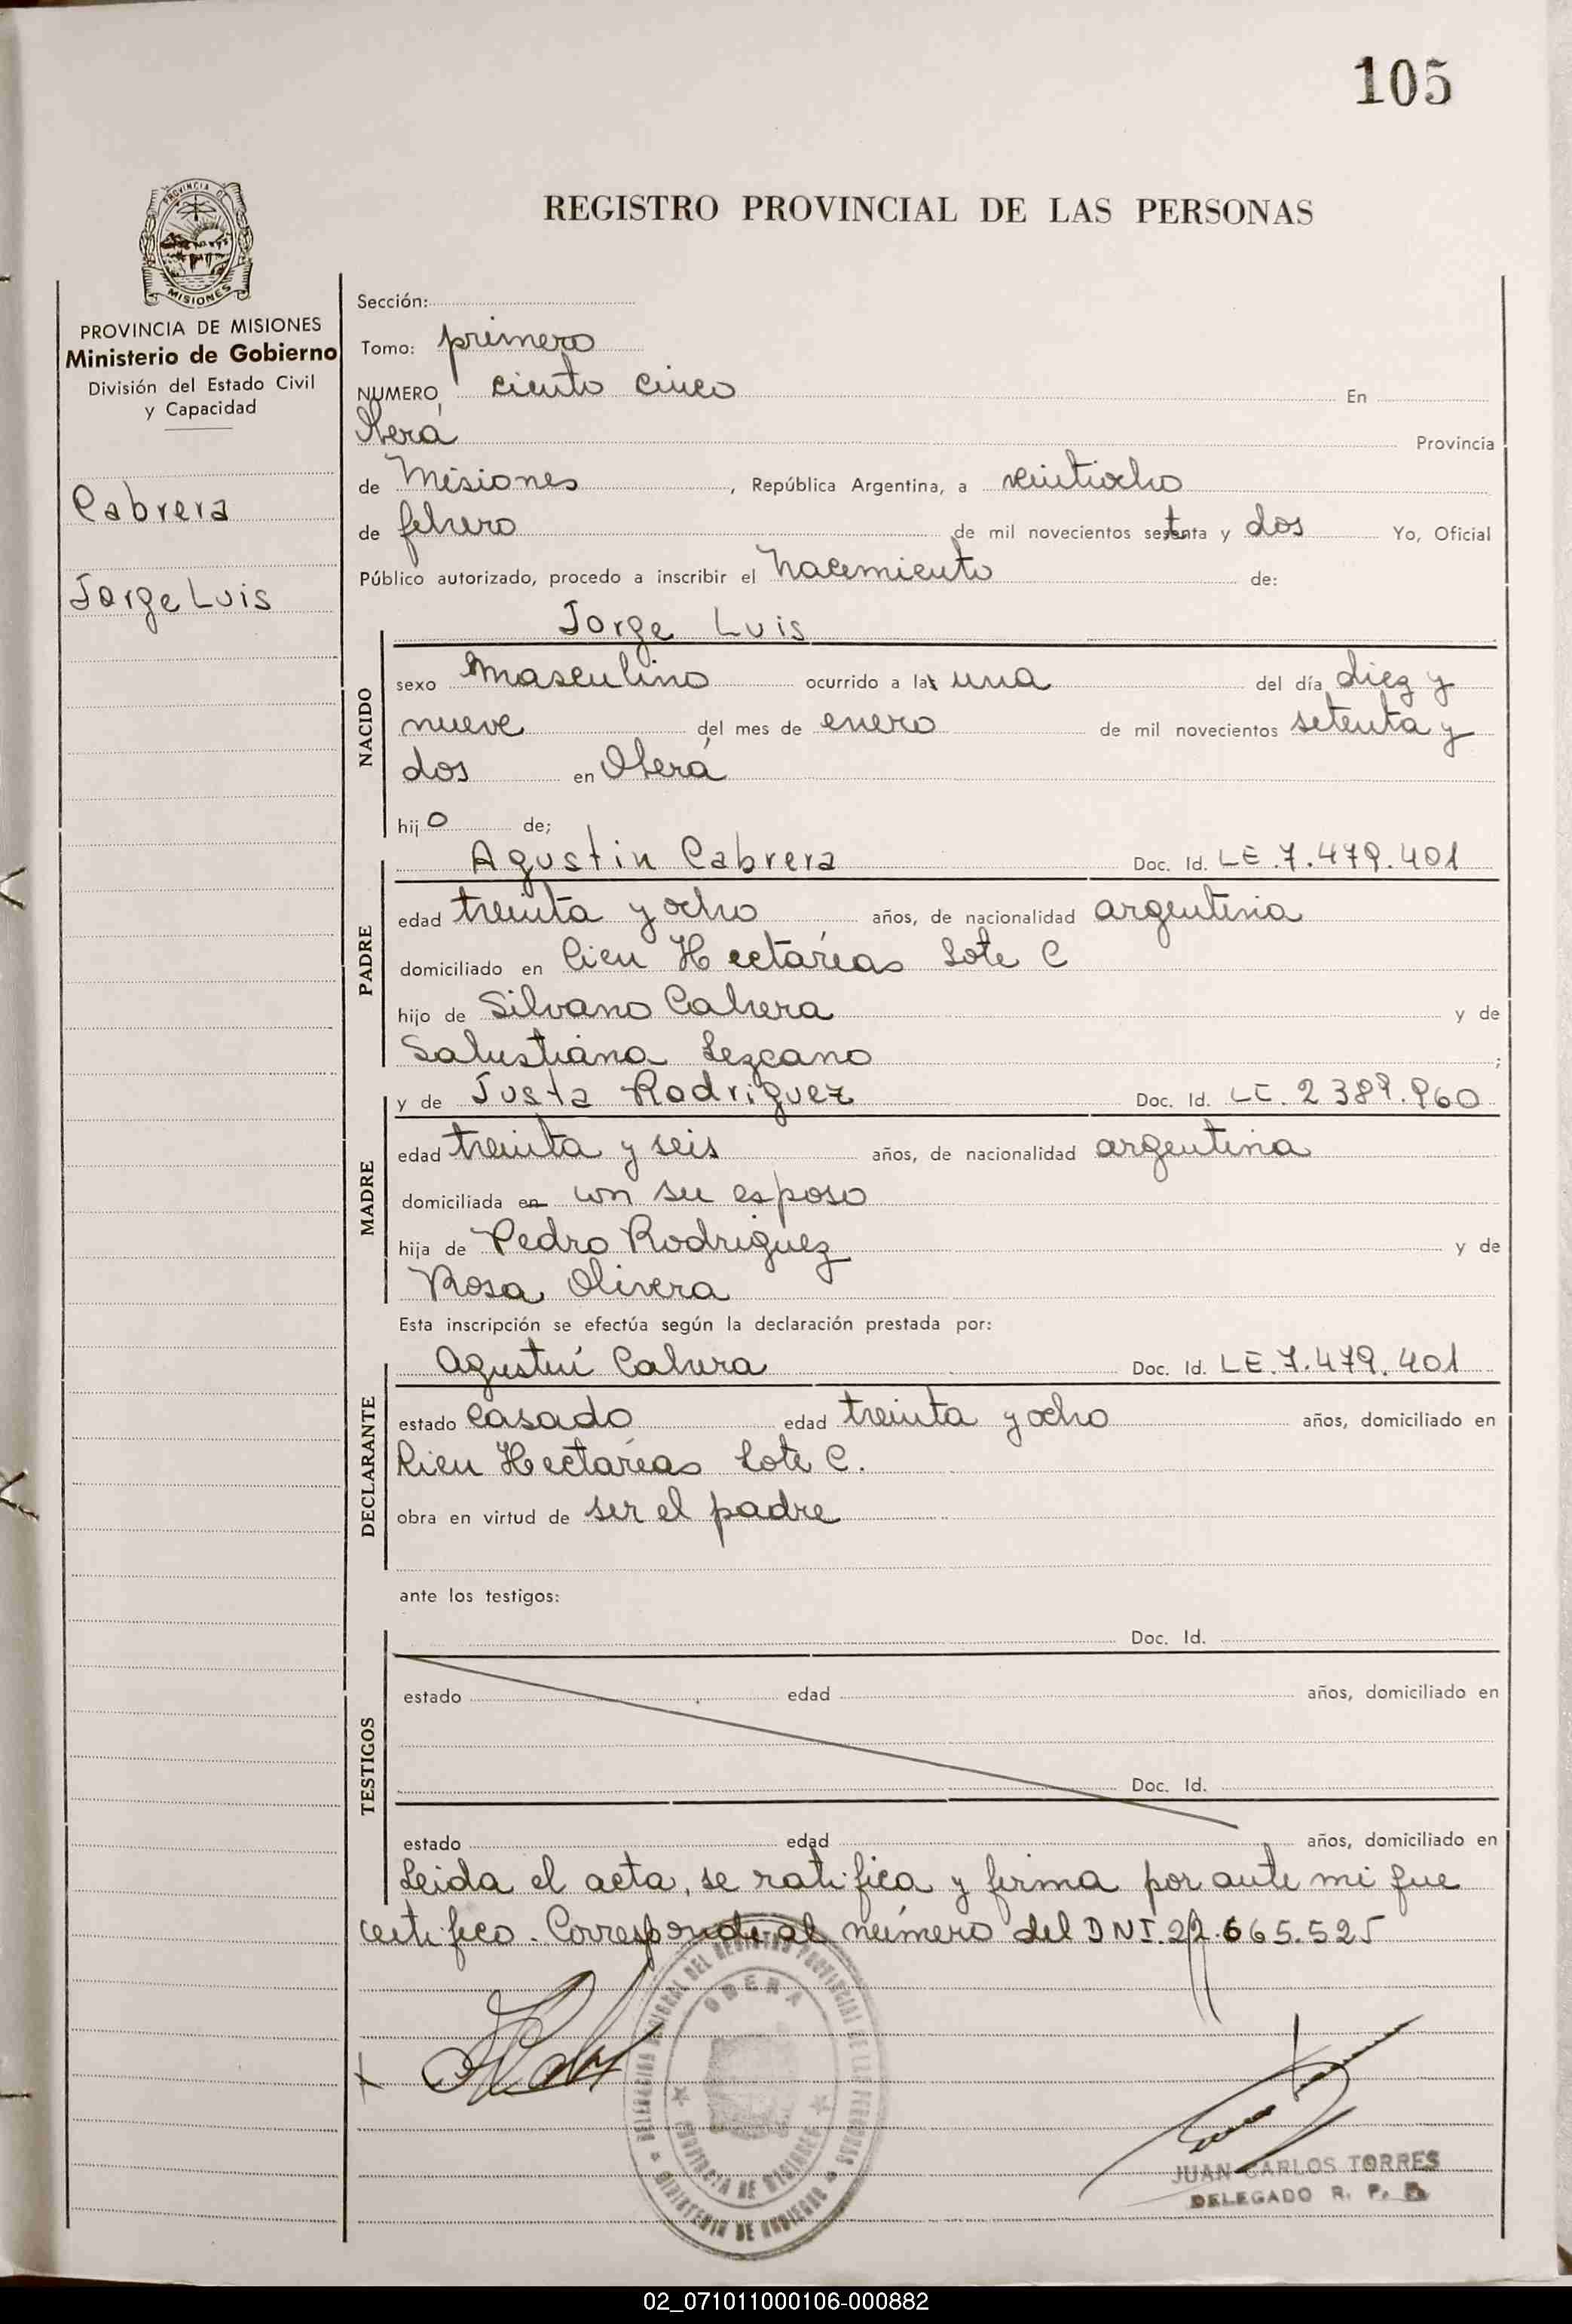 105
PROVINCIA DE
MISIONES
REGISTRO PROVINCIAL DE LAS PERSONAS
PROVINCIA DE MISIONES
Ministerio de Gobierno
División del Estado Civil
y Capacidad
Cabrera
Jorge Luis
Sección:
Tomo: primero
NUMERO ciento cinco En
Oberá Provincia
de Misiones, República Argentina, a veintiocho
de febrero de mil novecientos setenta y dos Yo, Oficial
Público autorizado, procedo a inscribir el nacimiento de:
Jorge Luis
NACIDO
sexo masculino ocurrido a la una del día diez y
nueve del mes de enero de mil novecientos setenta y
dos en Oberá
hijo de;
PADRE
Agustin Cabrera Doc. Id. LE 7.479.401
edad treinta y ocho años, de nacionalidad argentina
domiciliado en Cien Hectáreas Lote C
hijo de Silvano Cabrera y de
Salustiana Lezcano ;
MADRE
y de Justa Rodriguez Doc. Id. LC. 2 389.960
edad treinta y seis años, de nacionalidad argentina
domiciliada en con su esposo
hija de Pedro Rodriguez y de
Rosa Olivera
Esta inscripción se efectúa según la declaración prestada por:
DECLARANTE
Agustín Cabrera Doc. Id. LE.7.479.401
estado casado edad treinta y ocho años, domiciliado en
Cien Hectáreas Lote C.
obra en virtud de ser el padre
ante los testigos:
TESTIGOS
Doc. Id.
estado edad años, domiciliado en
Doc. Id.
estado edad años, domiciliado en
Leida el acta, se ratifica y firma por ante mi que
certifico. Corresponde al número del DNI.22.665.525
DELEGACION DEL REGISTRO PROVINCIAL DE LAS PERSONAS
OBERA
PROVINCIA DE MISIONES
MINISTERIO DE GOBIERNO
JUAN CARLOS TORRES
DELEGADO R. P. P.
02_071011000106-000882